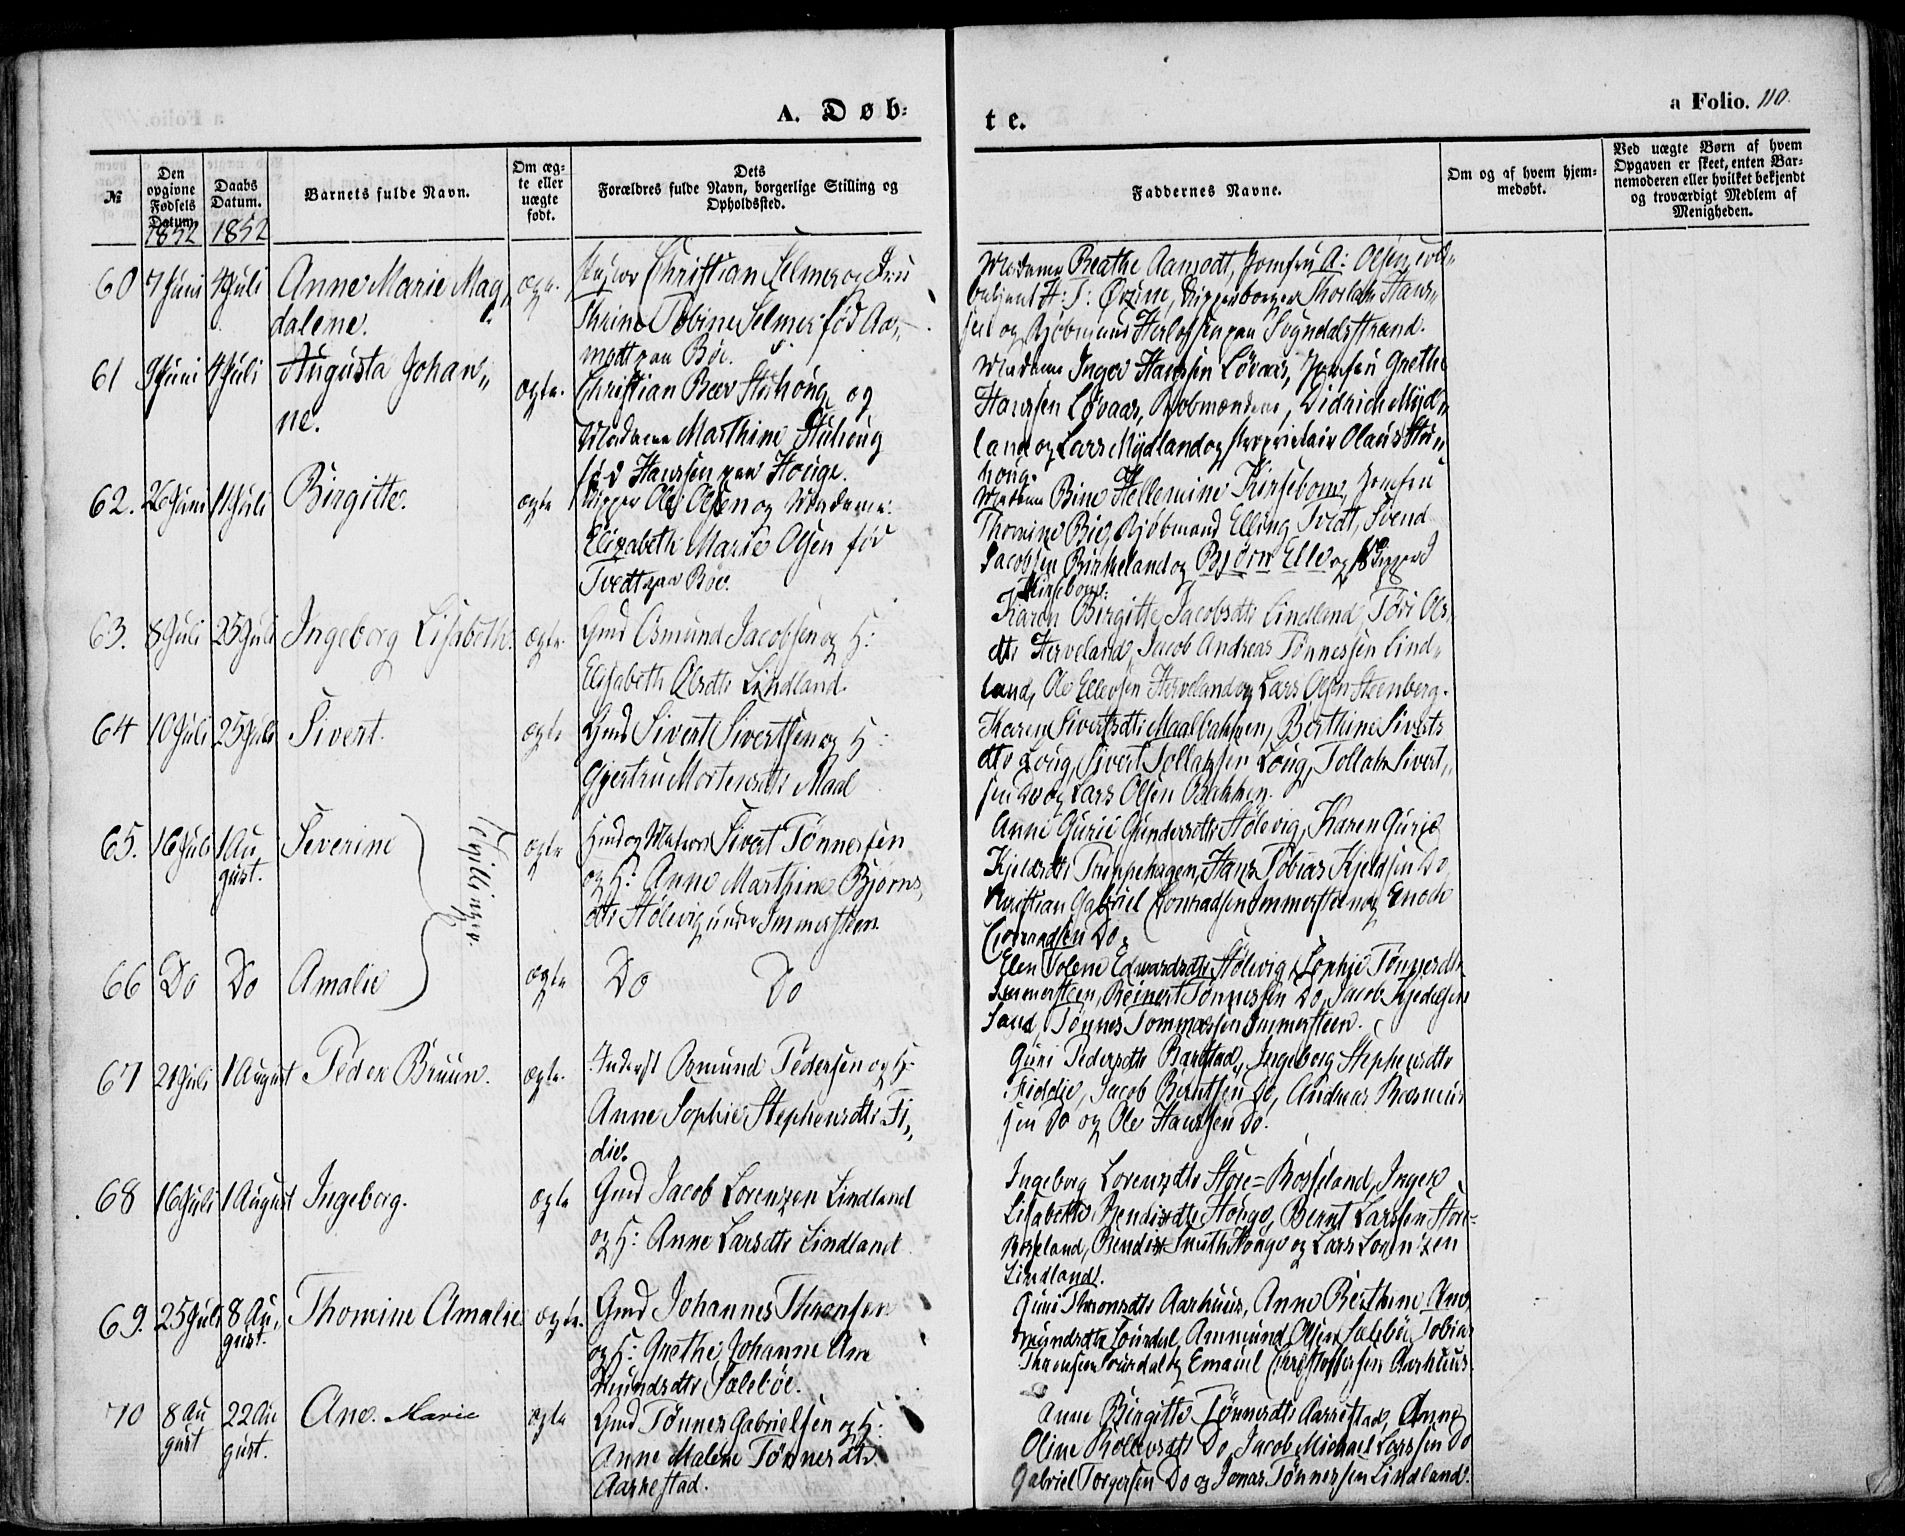 A. Døb-
te.
a Folio. 110.
№
Den opgivne Fødsels Datum.
1852
Daabs Datum.
1852
Barnets fulde Navn.
Om ægte eller uægte født.
Dets Forældres fulde Navn, borgerlige Stilling og Opholdssted.
Faddernes Navne.
Om og af hvem hjemmedøbt.
Ved uægte Børn af hvem Opgaven er skeet, enten Barnemoderen eller hvilket bekjendt og troværdigt Medlem af Menigheden.
60 7 Juni 4 Juli Anne Marie Mag„ ægte. Christian Selmer og Fru
dalene. Thrine Tobine Selmer fød Aa„
modt paa Böe.
Madame Beathe Aamodt, Jomfru A: Olsen,
H: T: Skipperborger Thorlak Hans„
sen og Kjøbmand paa Sogndalsstrand.
61 9 Juni 4 Juli Augusta Johan„ ægte. Christian Stuhoug og
ne. Madame Marthine Stuhoug
fød Hanssen paa Houge.
Madame Inger Hanssen Løvaas, Jomfru Grethe
Hanssen Løvaas, Kjøbmændene, Didrich Myd„
land og Lars Mydland og Proprietair Olaus Stu„
houg.
62. 26 Juni 11 Juli Birgitte. ægte Skipper Ole Olsen og Madame
Elizabeth Marie Olsen fød
Tvedt paa Böe.
Madame Bine Hellemine Kirsebom, Jomfru
Thomine Kjøbmand Elling Tvedt, Svend
Jacobsen Birkeland og Bjørn Elle og Skipper
Kirsebom.
63. 8 Juli 25 Juli Ingeborg Lisabeth. ægte. Gmd Osmund Jacobsen og H:
Elisabeth Olsdtr Lindland.
Karen Birgitte Jacobsdtr Lindland, Tori Ols„
dtr Herveland, Jacob Andreas Tønnessen Lind„
land, Ole Ellevsen Herveland og Lars Olsen Steenberg.
64 10 Juli 25 Juli Sivert. ægte Gmd Sivert Sivertsen og H:
Gjertru Mortensdtr Maal
Karen Sivertsdtr Maalbakken, Berthine Siverts
dtr Loug, Sivert Tollaksen Loug, Tollak Sivert„
sen Do og Lars Olsen Bakken.
65. 16 Juli 1 Au Severine ægte Sivert Tønnessen
gust. og H: Anne Marthine Bjørns„
dtr Stølevig under Immersteen.
Tvillinger.
Anne Gurie Gundersdtr Stølevig, Karen Gurie
Kjeldsdtr Trippehagen, Hans Tobias Kjeldsen Do
Christian Gabriel Conradsen Immersteen og Enoch
Conradsen Do.
66 Do Do Amalie ægte Do Do
Elen Tolene Edwardsdtr Stølevig, Sophie Tønnesdtr
Immersteen, Reinert Tønnessen Do, Jacob
Sand, Tønnes Tommæssen Immersteen.
67 21 Juli 1 August Peder Bruun. ægte. Osmund Pedersen og H:
Anne Sophie Stephensdtr Fi„
die.
Guri Pedersdtr Barstad, Ingeborg Stephensdtr
Fiddie, Jacob Berntsen Do, Andreas Rasmus
sen Do og Ole Hanssen Do.
68 16 Juli 1 August Ingeborg. ægte Gmd Jacob Lorenzen Lindland
og H: Anne Larsdtr Lindland.
Ingeborg Lorenzdtr Store=Rosseland, Inger
Lisabeth Bendixdtr Hougo, Bernt Larssen Store=
Rosseland, Bendix Smith Hougo og Lars Lorentzen
Lindland.
69. 25 Juli 8 Au„ Thomine Amalie ægte. Gmd Johannes Thronsen
gust. og H: Grethe Johanne Am
mundsdtr Salebøe.
Guri Thronsdtr Aarhuus, Anne Berthine Am„
mundsdtr Lourdal, Ammund Olsen Salebøe, Tobias
Thronsen Lourdal og Emanuel Christoffersen Aarhuus.
70 8 Au 22 Au Ane. Marie ægte Gmd Tønnes Gabrielsen og H:
gust gust. Anne Malene Tønnesdtr
Aarrestad.
Anne Birgitte Tønnesdtr Aarrestad, Anne
Oline Rollevsdtr Do, Jacob Michael Larssen Do
Gabriel Torgersen Do og Jonas Tønnessen Lindland.